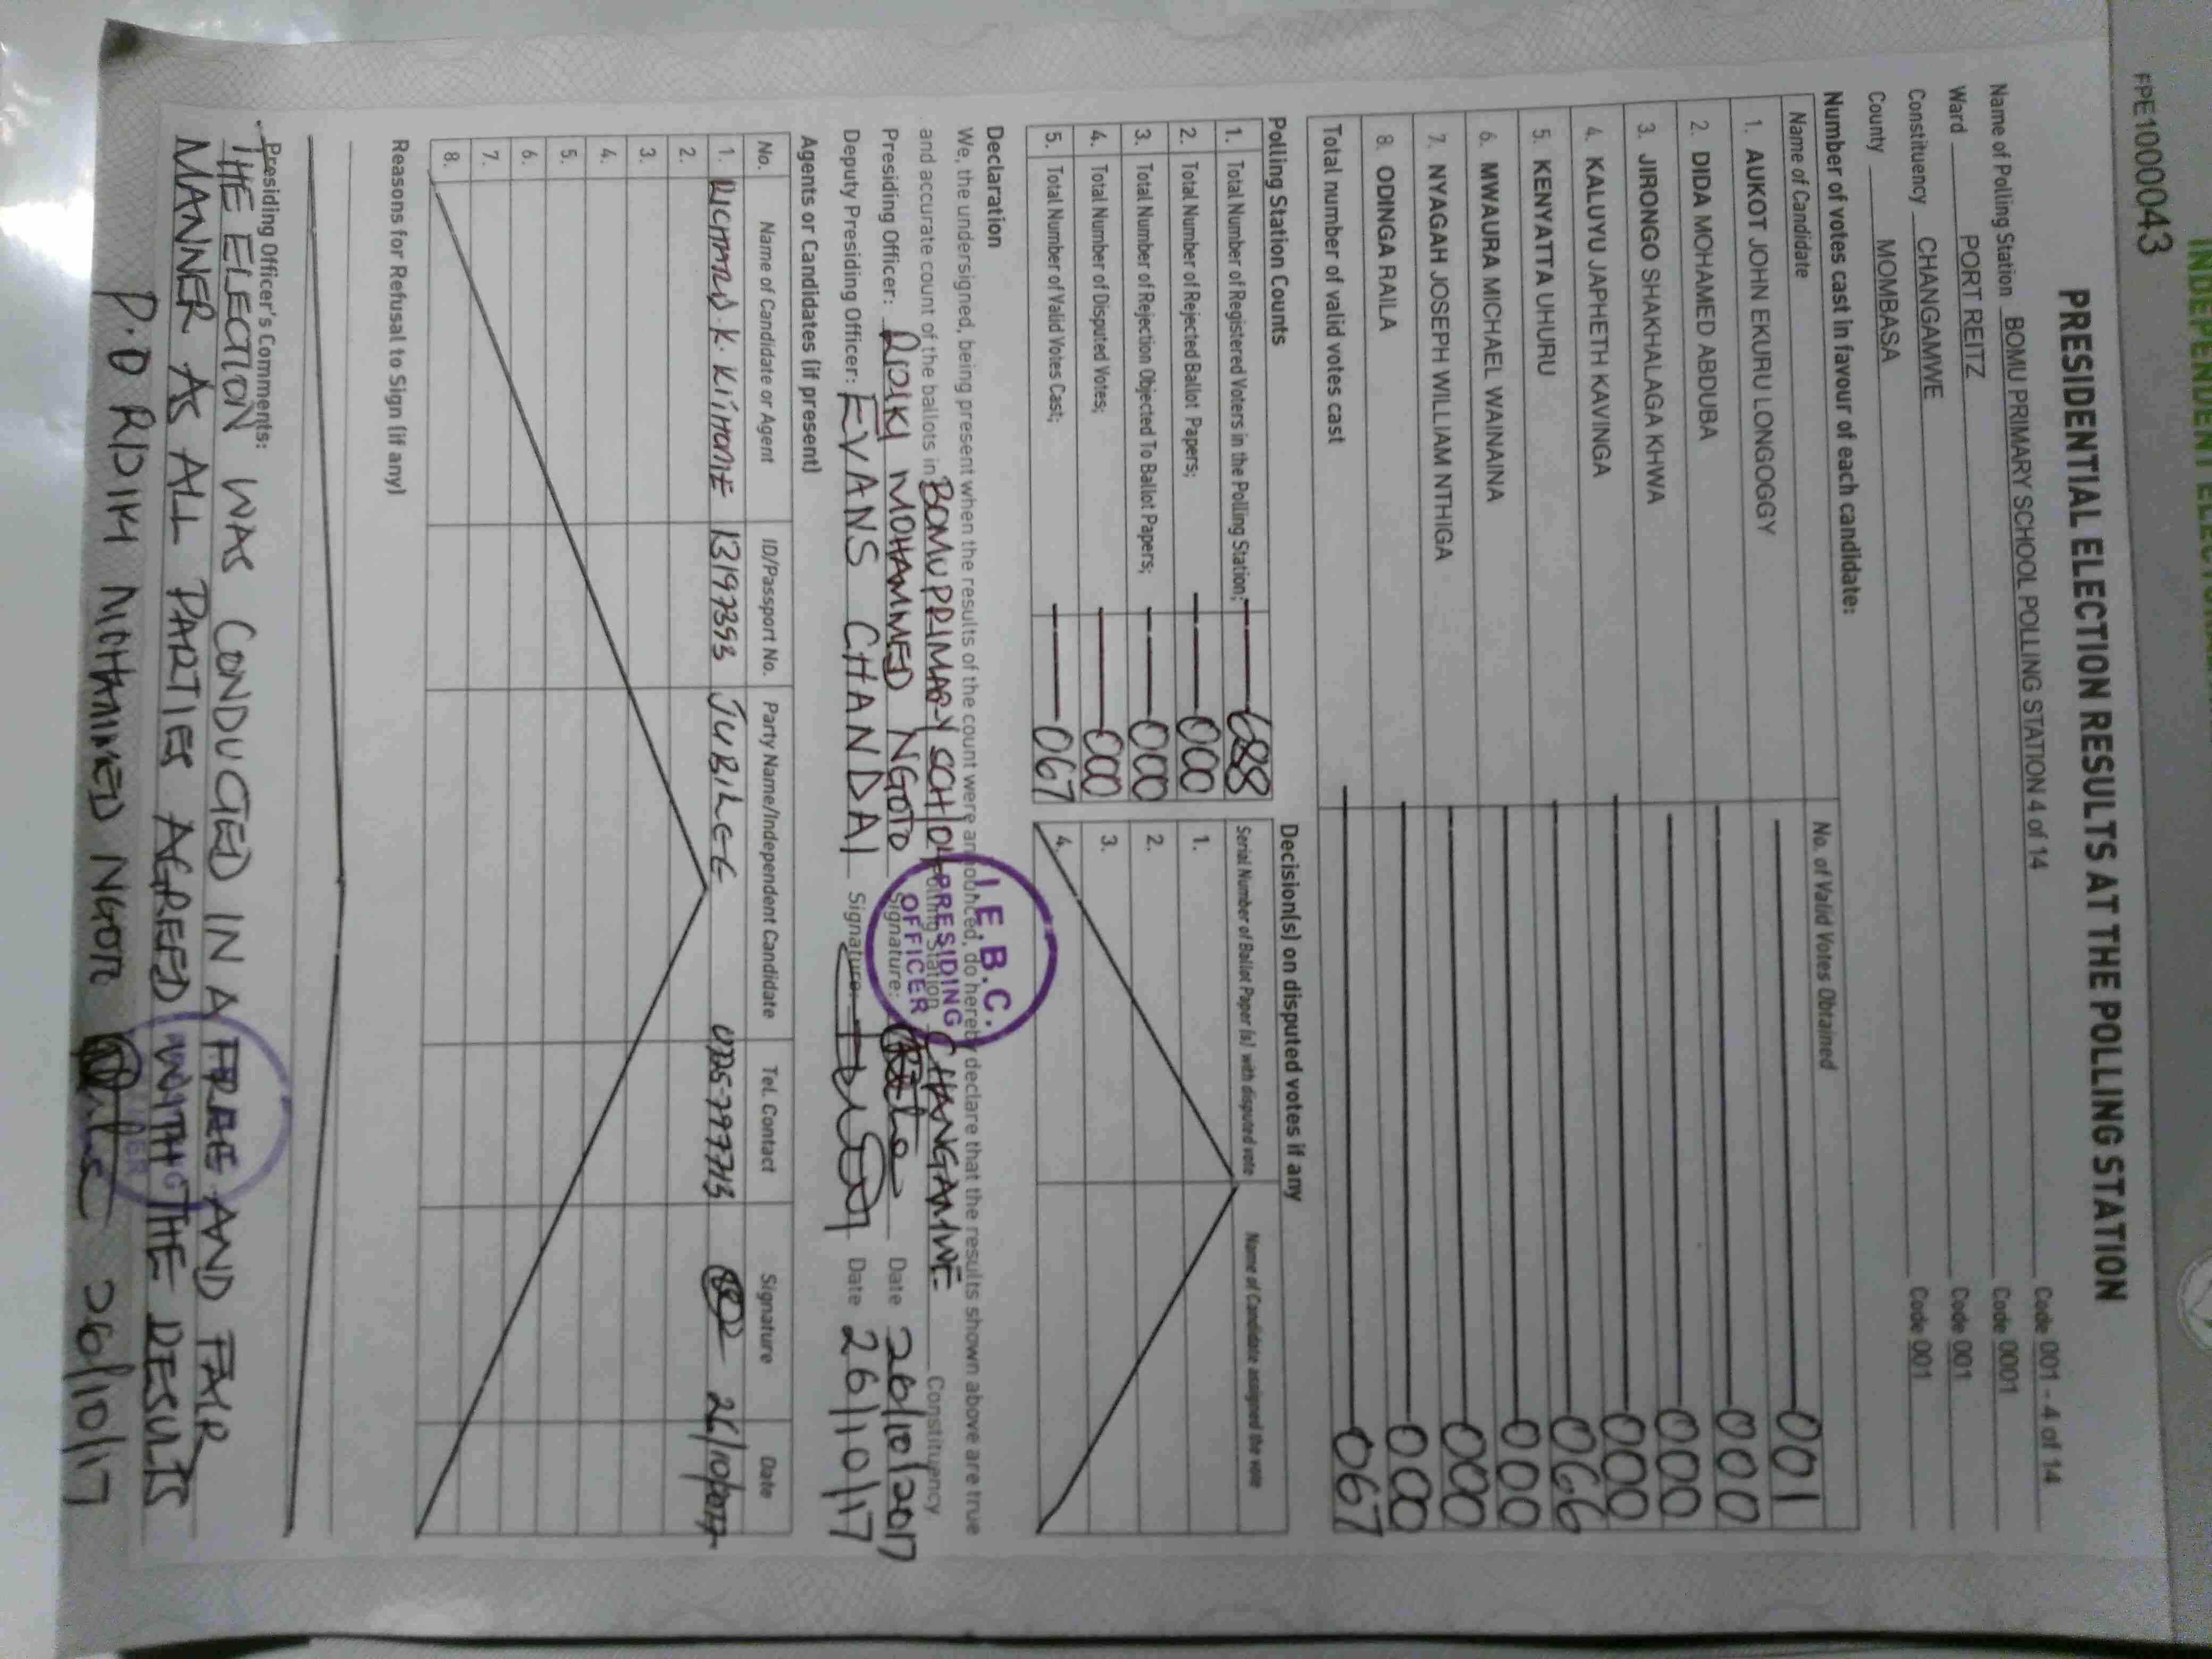 FPE1000043
PRESIDENTIAL ELECTION RESULTS AT THE POLLING STATION
Name of Polling Station BOMU PRIMARY SCHOOL POLLING STATION 4 of 14 Code 001 - 4 of 14
Code 0001
Ward PORT REITZ Code 001
Constituency CHANGAMWE Code 001
County MOMBASA
Number of votes cast in favour of each candidate:
Name of Candidate No. of Valid Votes Obtained
1. AUKOT JOHN EKURU LONGOGGY 001
2. DIDA MOHAMED ABDUBA 000
3. JIRONGO SHAKHALAGA KHWA 000
4. KALUYU JAPHETH KAVINGA 000
5. KENYATTA UHURU 066
6. MWAURA MICHAEL WAINAINA 000
7. NYAGAH JOSEPH WILLIAM NTHIGA 000
8. ODINGA RAILA 000
Total number of valid votes cast 067
Polling Station Counts
1. Total Number of Registered Voters in the Polling Station; 688
2. Total Number of Rejected Ballot Papers; 000
3. Total Number of Rejection Objected To Ballot Papers; 000
4. Total Number of Disputed Votes; 000
5. Total Number of Valid Votes Cast; 067
Decision(s) on disputed votes if any
Serial Number of Ballot Paper (s) with disputed vote Name of Candidate assigned the vote
1.
2.
3.
4.
Declaration
We, the undersigned, being present when the results of the count were announced, do hereby declare that the results shown above are true
and accurate count of the ballots in BOMU PRIMARY SCHOOL Polling Station CHANGAMWE Constituency
Presiding Officer: RIDIKI MOHAMMED NGOTO Signature: Date 26/10/2017
Deputy Presiding Officer: EVANS CHANDAI Signature: Date 26/10/17
I.E.B.C.
PRESIDING
OFFICER
Agents or Candidates (if present)
No. Name of Candidate or Agent ID/Passport No. Party Name/Independent Candidate Tel. Contact Signature Date
1. RICHARD.K. 13197393 JUBILEE 26/10/2017
2.
3.
4.
5.
6.
7.
8.
Reasons for Refusal to Sign (if any)
Presiding Officer's Comments:
THE ELECTION WAS CONDUCTED IN A FREE AND FAIR
MANNER AS ALL PARTIES AGREED WITH THE RESULTS
P.O RIDIKI MOHAMMED NGOTO 26/10/17